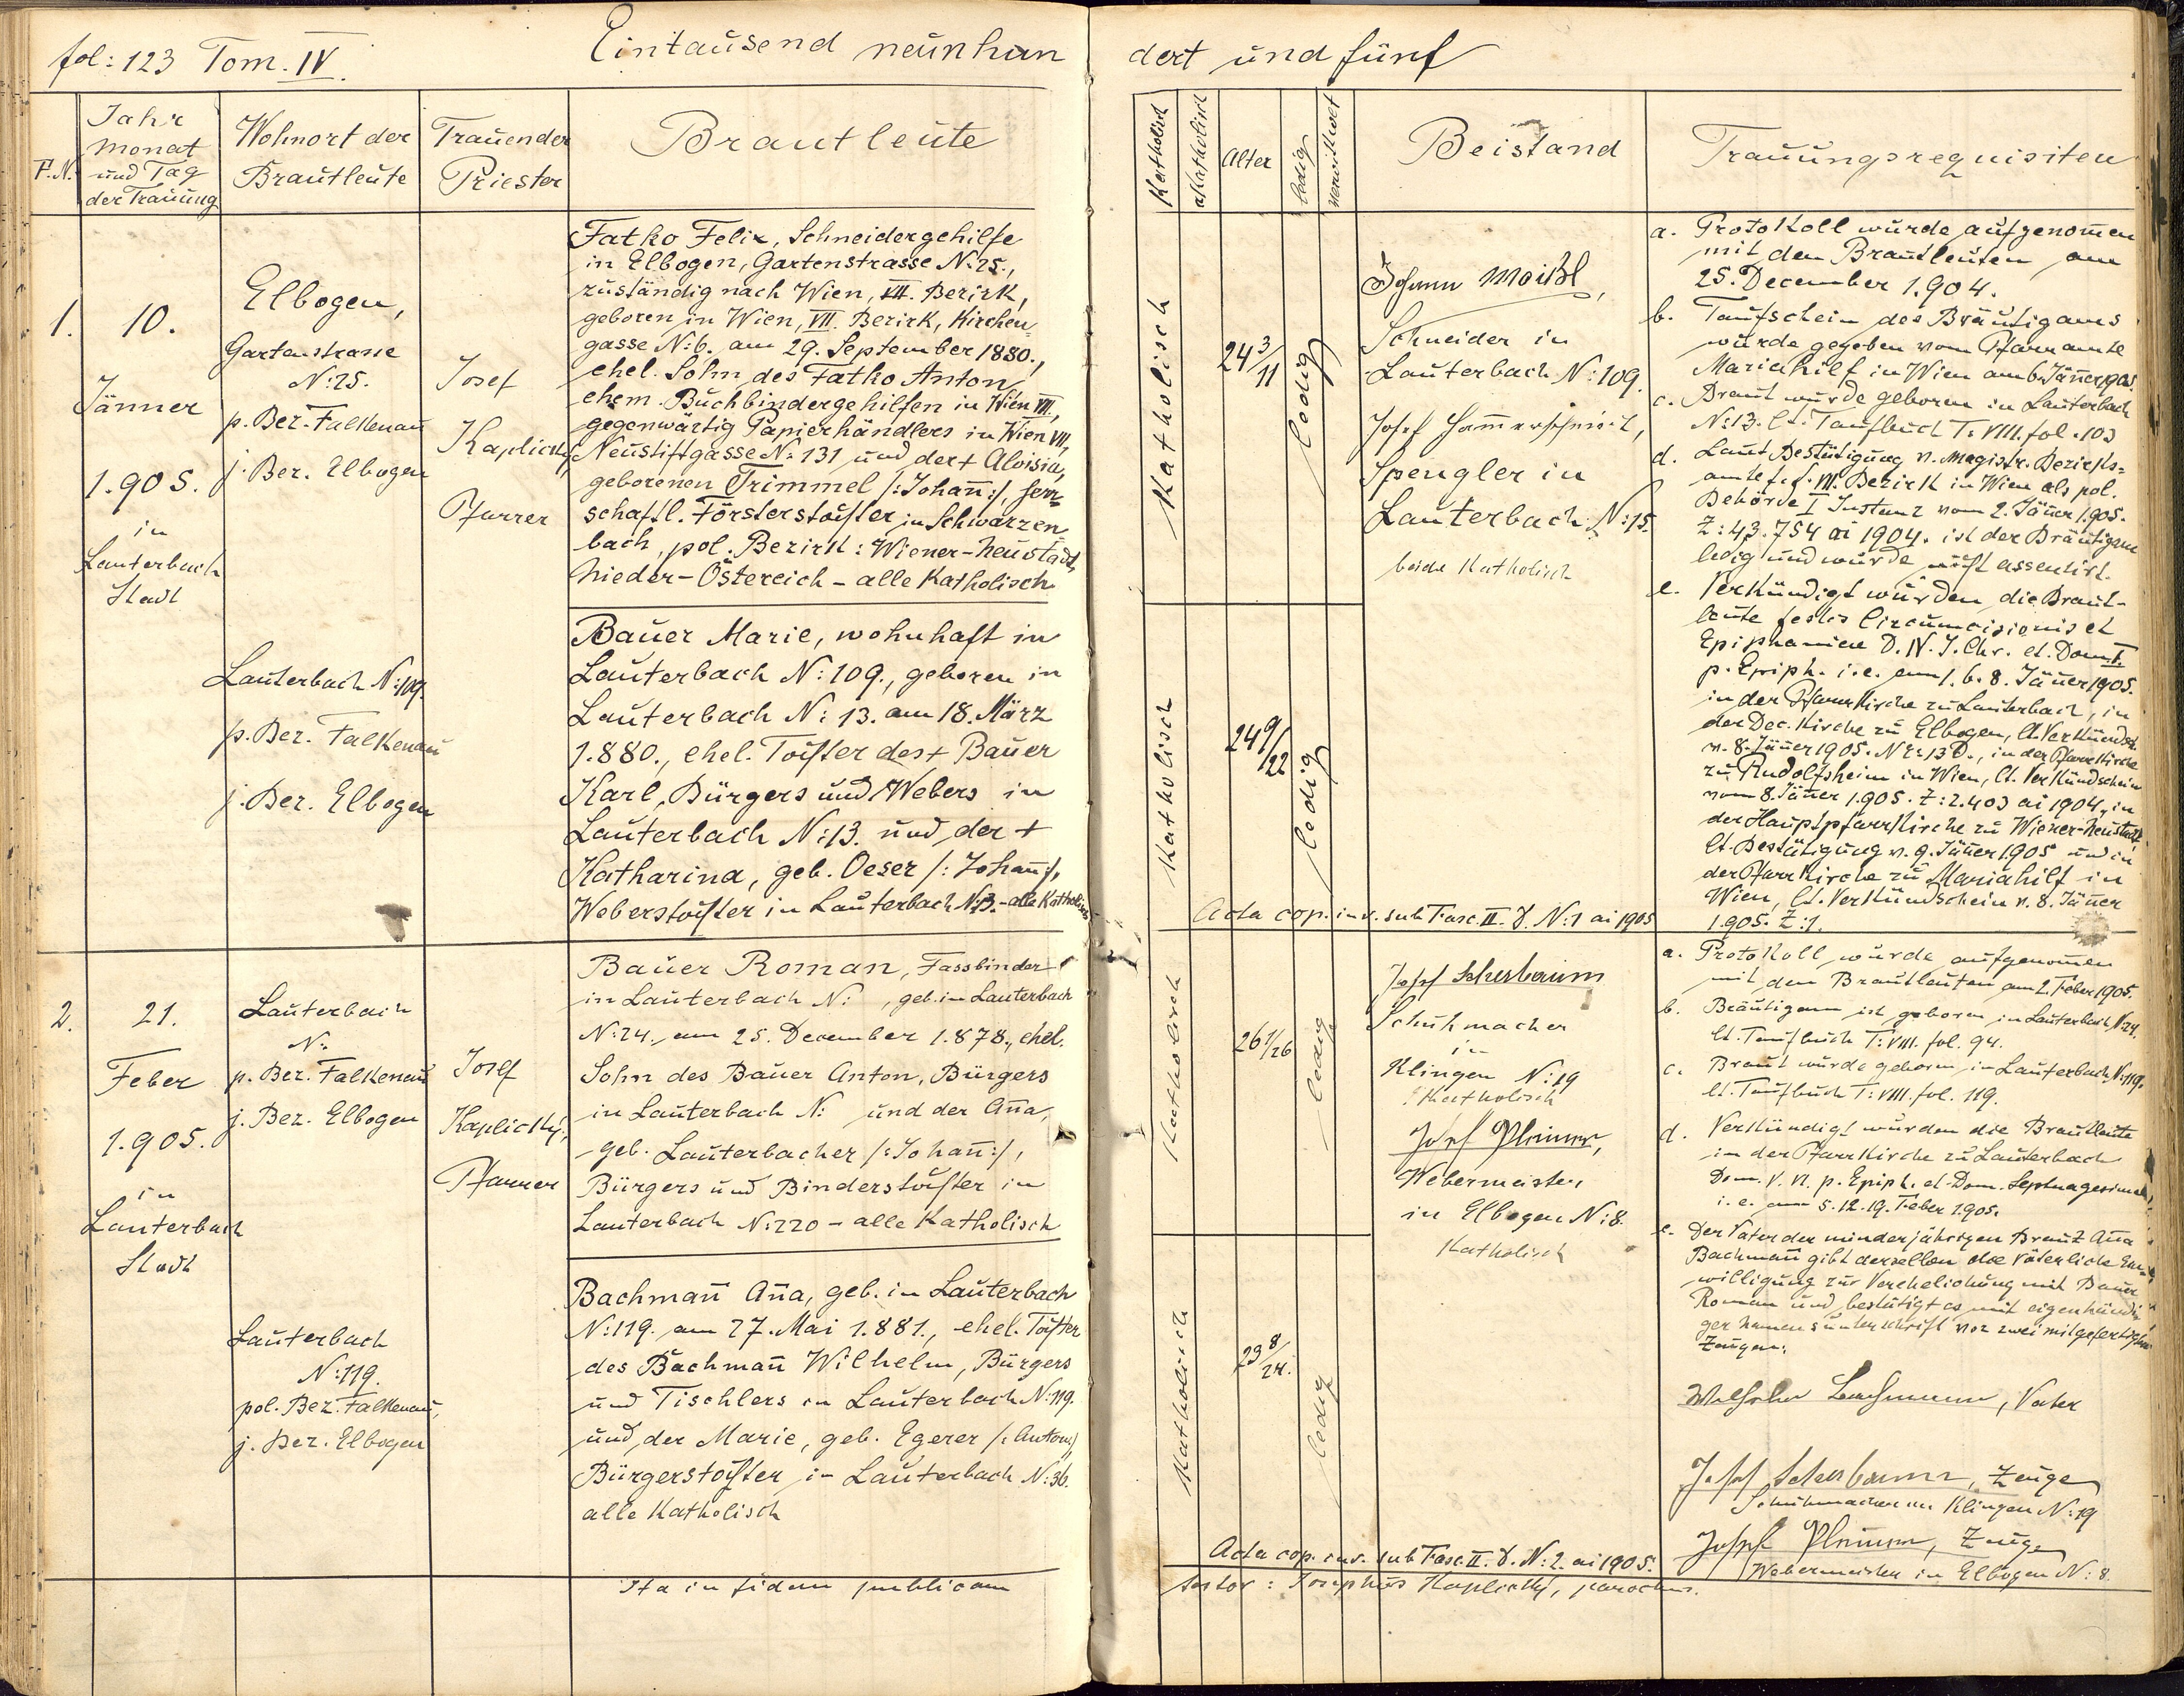 fol: 123 Tom. IV.
Eintausend neunhun
dert und fünf
F.N.
Jahr
Monat
und Tag
der Trauung
Wohnort der
Brautleute
Trauender
Priester
Brautleute
Katholisch
akatholisch
Alter
ledig
verwitwet
Beistand
Trauungsrequisiten
1.
10.
Jänner
1.905.
in
Lauterbach
Stadt
Elbogen,
Gartenstrasse
N:25.
p. Bez. Falkenau
j. Bez. Elbogen
Josef
Kaplický,
Pfarrer
Fatko Felix, Schneidergehilfe
in Elbogen, Gartenstrasse N:25.,
zuständig nach Wien, VII. Bezirk,
geboren in Wien, VII. Bezirk, Kirchen
gasse N:6. am 29. September 1880.,
ehel. Sohn des Fatko Anton,
ehem. Buchbindergehilfen in Wien VII.,
gegenwärtig Papierhändlers in Wien VII,
Neustiftgasse N: 131 und der + Aloisia,
geborenen Trimmel /:Johan̄:/, herr
schaftl. Försterstochter in Schwarzen
bach, pol. Bezirk: Wiener-Neustadt,
Nieder-Östereich - alle Katholisch
Lauterbach N:109.
p. Bez. Falkenau
j. Bez. Elbogen
Bauer Marie, wohnhaft in
Lauterbach N:109., geboren in
Lauterbach N: 13. am 18. März
1.880., ehel. Tochter des + Bauer
Karl, Bürgers und Webers in
Lauterbach N:13. und der +
Katharina, geb. Oeser /:Johan̄:/,
Weberstochter in Lauterbach N:13. - alle Katholisch
Katholisch
24 3/11
ledig
Johann Moißl,
Schneider in
Lauterbach N:109.
Josef Ham̄erschmidt,
Spengler in
Lauterbach N:15.
beide Katholisch
Katholisch
24 9/22
ledig
Acta cop. inv. sub Fasc. II. N:1 ai 1905
a. Protokoll wurde aufgenom̄en
mit den Brautleuten am
25. December 1.904.
b. Taufschein des Bräutigams
wurde gegeben vom Pfarramte
Mariahilf in Wien am 6. Jän̄er 1905.
c. Braut wurde geboren in Lauterbach
N:13. lt. Taufbuch T: VIII. fol. 103
d. Laut Bestätigung v. Magistr. Bezirks-
amte f. d. VII. Bezirk in Wien als pol.
Behörde I Instanz vom 2. Jän̄er 1.905.
Z: 43.754 ai 1904. ist der Bräutigam
ledig und wurde nicht assentirt.
e. Verkündigt wurden die Braut-
leute festis Circumcisionis et
Epiphaniae D. N. J. Chr. et. Dom. I.
p. Epiph. i. e. am 1. 6. 8. Jän̄er 1905.
in der Pfarrkirche zu Lauterbach, in
der Dec. Kirche zu Elbogen, lt. Verkündsch.
v. 8. Jän̄er 1905. in der Pfarrkirche
zu Rudolfsheim in Wien, lt. Verkündschein
vom 8. Jän̄er 1.905. Z: 2.403 ai 1904, in
der Hauptpfarrkirche zu Wiener-Neustadt,
lt. Bestätigung v. 9. Jän̄er 1905 und in
der Pfarrkirche zu Mariahilf in
Wien, lt. Verkündschein v. 8. Jän̄er
1.905. Z: 1.
2.
21.
Feber
1.905.
in
Lauterbach
Stadt
Lauterbach
N:
p. Bez. Falkenau
j. Bez. Elbogen
Josef
Kaplický,
Pfarrer
Bauer Roman, Fassbinder
in Lauterbach N: , geb. in Lauterbach
N:24., am 25. December 1.878., ehel.
Sohn des Bauer Anton, Bürgers
in Lauterbach N: und der An̄a,
geb. Lauterbacher /:Johan̄:/,
Bürgers und Binderstochter in
Lauterbach N:220 - alle Katholisch
Lauterbach
N:119.
pol. Bez. Falkenau,
j. Bez. Elbogen
Bachman̄ An̄a, geb. in Lauterbach
N:119. am 27. Mai 1.881., ehel. Tochter
des Bachman̄ Wilhelm, Bürgers
und Tischlers in Lauterbach N:119.
und der Marie, geb. Egerer /:Anton:/,
Bürgerstochter in Lauterbach N:36.
alle Katholisch
Ita in fidem publicam
Katholisch
26 1/26
ledig
Josef Scherbaum
Schuhmacher
in
Klingen N:19
Katholisch
Josef Pleiner,
Webermeister
in Elbogen N:8.
Katholisch
Katholisch
23 8/24.
ledig
Acta cop. inv. sub Fasc. II. N:2. ai 1905.
testor: Josephus Kaplický, parochus.
a. Protokoll wurde aufgenom̄en
mit den Brautleuten am 2. Feber 1905.
b. Bräutigam ist geboren in Lauterbach N:24.
lt. Taufbuch T: VIII. fol. 94.
c. Braut wurde geboren in Lauterbach N:119.
lt. Taufbuch T: VIII. fol. 119.
d. Verkündigt wurden die Brautleute
in der Pfarrkirche zu Lauterbach
Dom. V. VI. p. Epiph. et Dom. Septuagesima,
i. e. am 5. 12. 19. Feber 1905.
e. Der Vater der minderjährigen Braut An̄a
Bachman̄ gibt derselben die väterliche Ein-
willigung zur Verehelichung mit Bauer
Roman und bestätigt es mit eigenhändi
ger Namensunterschrift vor zwei mitgefertigten
Zeugen:
Wilhelm Bachmann, Vater
Josef Scherbaum, Zeuge
Schuhmacher in Klingen N:19
Josef Pleiner, Zeuge
Webermeister in Elbogen N:8.